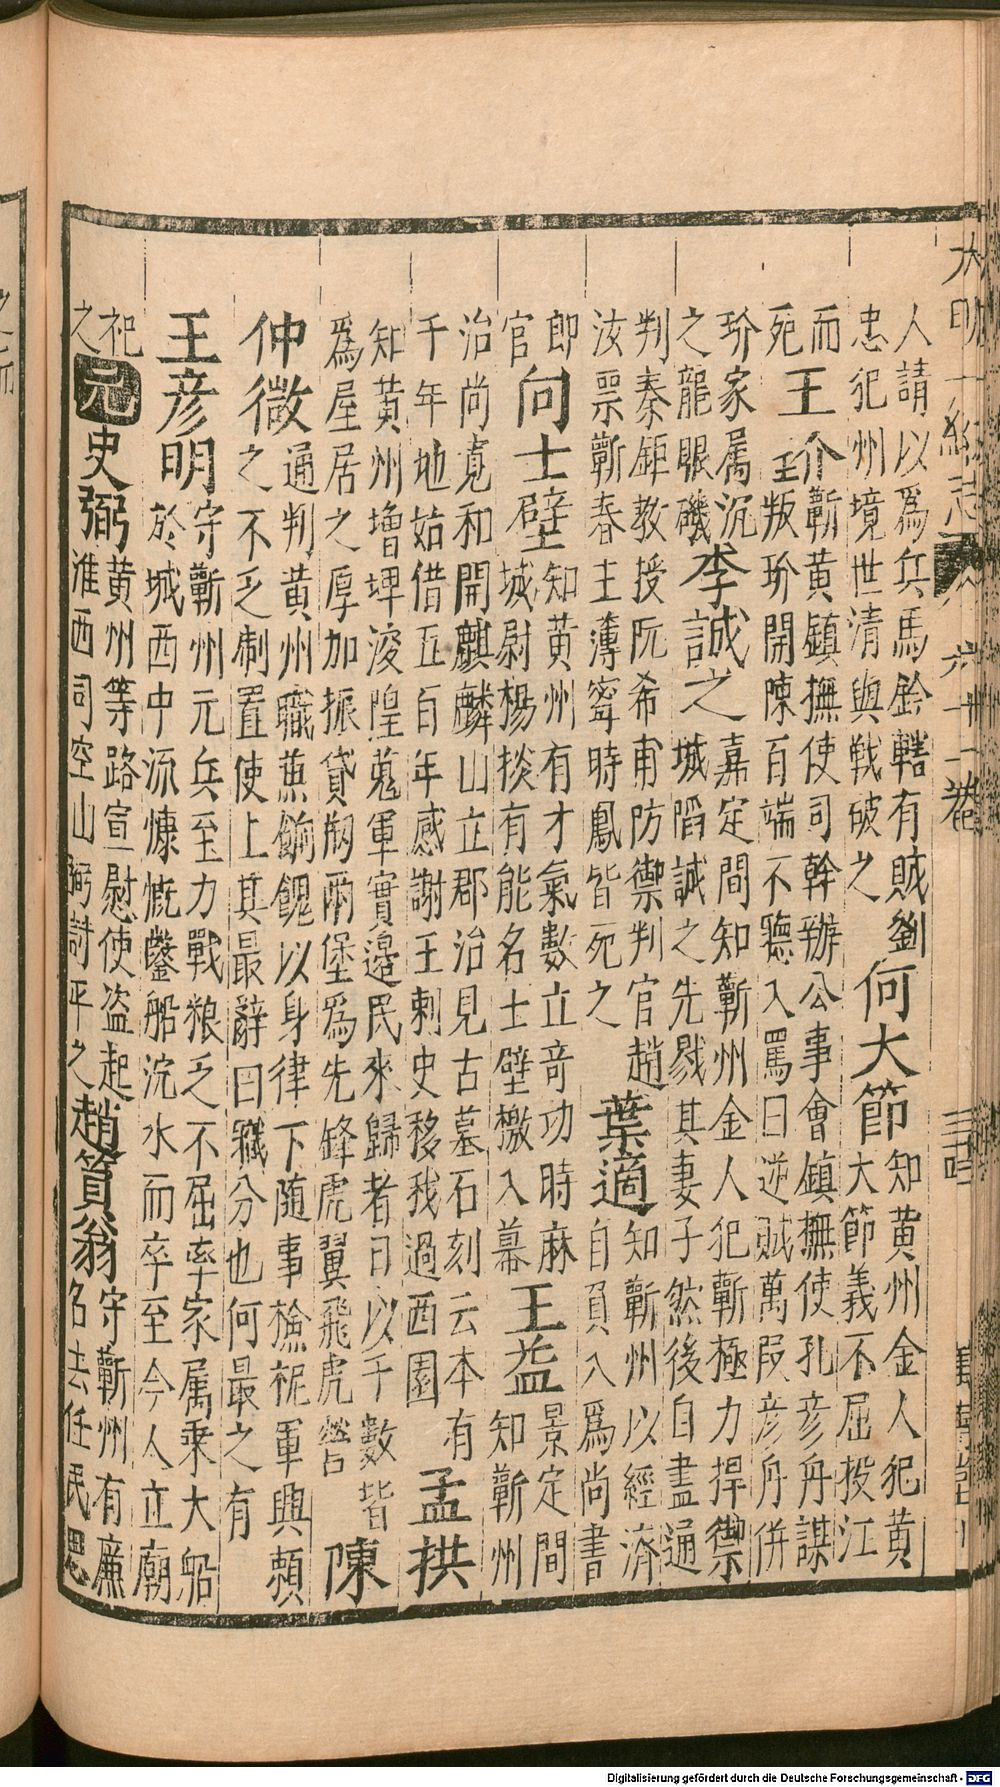 大明一統志
六十一卷
人請以為兵馬鈐轄有賊劉
忠犯州境世清與戰破之
何大節
知黃州金人犯黃
大節義不屈投江
而
死
王玠
蘄黃鎮撫使司幹辦公事會鎮撫使孔彥舟謀
叛玠開陳百端不聽入罵曰逆賊萬叚彥舟併
玠家属沉
之龍眼磯
李誠之
嘉定間知蘄州金人犯蘄極力捍禦
城陷誠之先戮其妻子然後自盡通
判秦鉅教授阮希甫防禦判官趙
汝票蘄春主薄寗時鳳皆死之
葉適
知蘄州以經濟
自負入為尚書
即
官
向士壁
知黃州有才氣數立竒功時麻
城尉楊掞有能名士壁檄入幕
王益
景定間
知蘄州
治尚寬和開麒麟山立郡治見古墓石刻云本有
千年地始借五百年感謝王刺史移我過西園
孟拱
知黃州增埤浚隍蒐軍實邊民來歸者日以千數皆
為屋居之厚加振貸剏兩堡為先鋒虎翼飛虎營
陳
仲微
通判黃州職兼餉餽以身律下随事檢柅軍興賴
之不乏制置使上其最辭曰職分也何最之有
王彥明
守蘄州元兵至力戰粮乏不屈率家属乘大船
於城西中流慷慨鑿船沉水而卒至今人立廟
祀
之
元
史弼
黃州等路宣慰使盗起
淮西司空山弼討平之
趙篔翁
守蘄州有廉
名去任民思
Digitalisierung gefördert durch die Deutsche Forschungsgemeinschaft - DFG